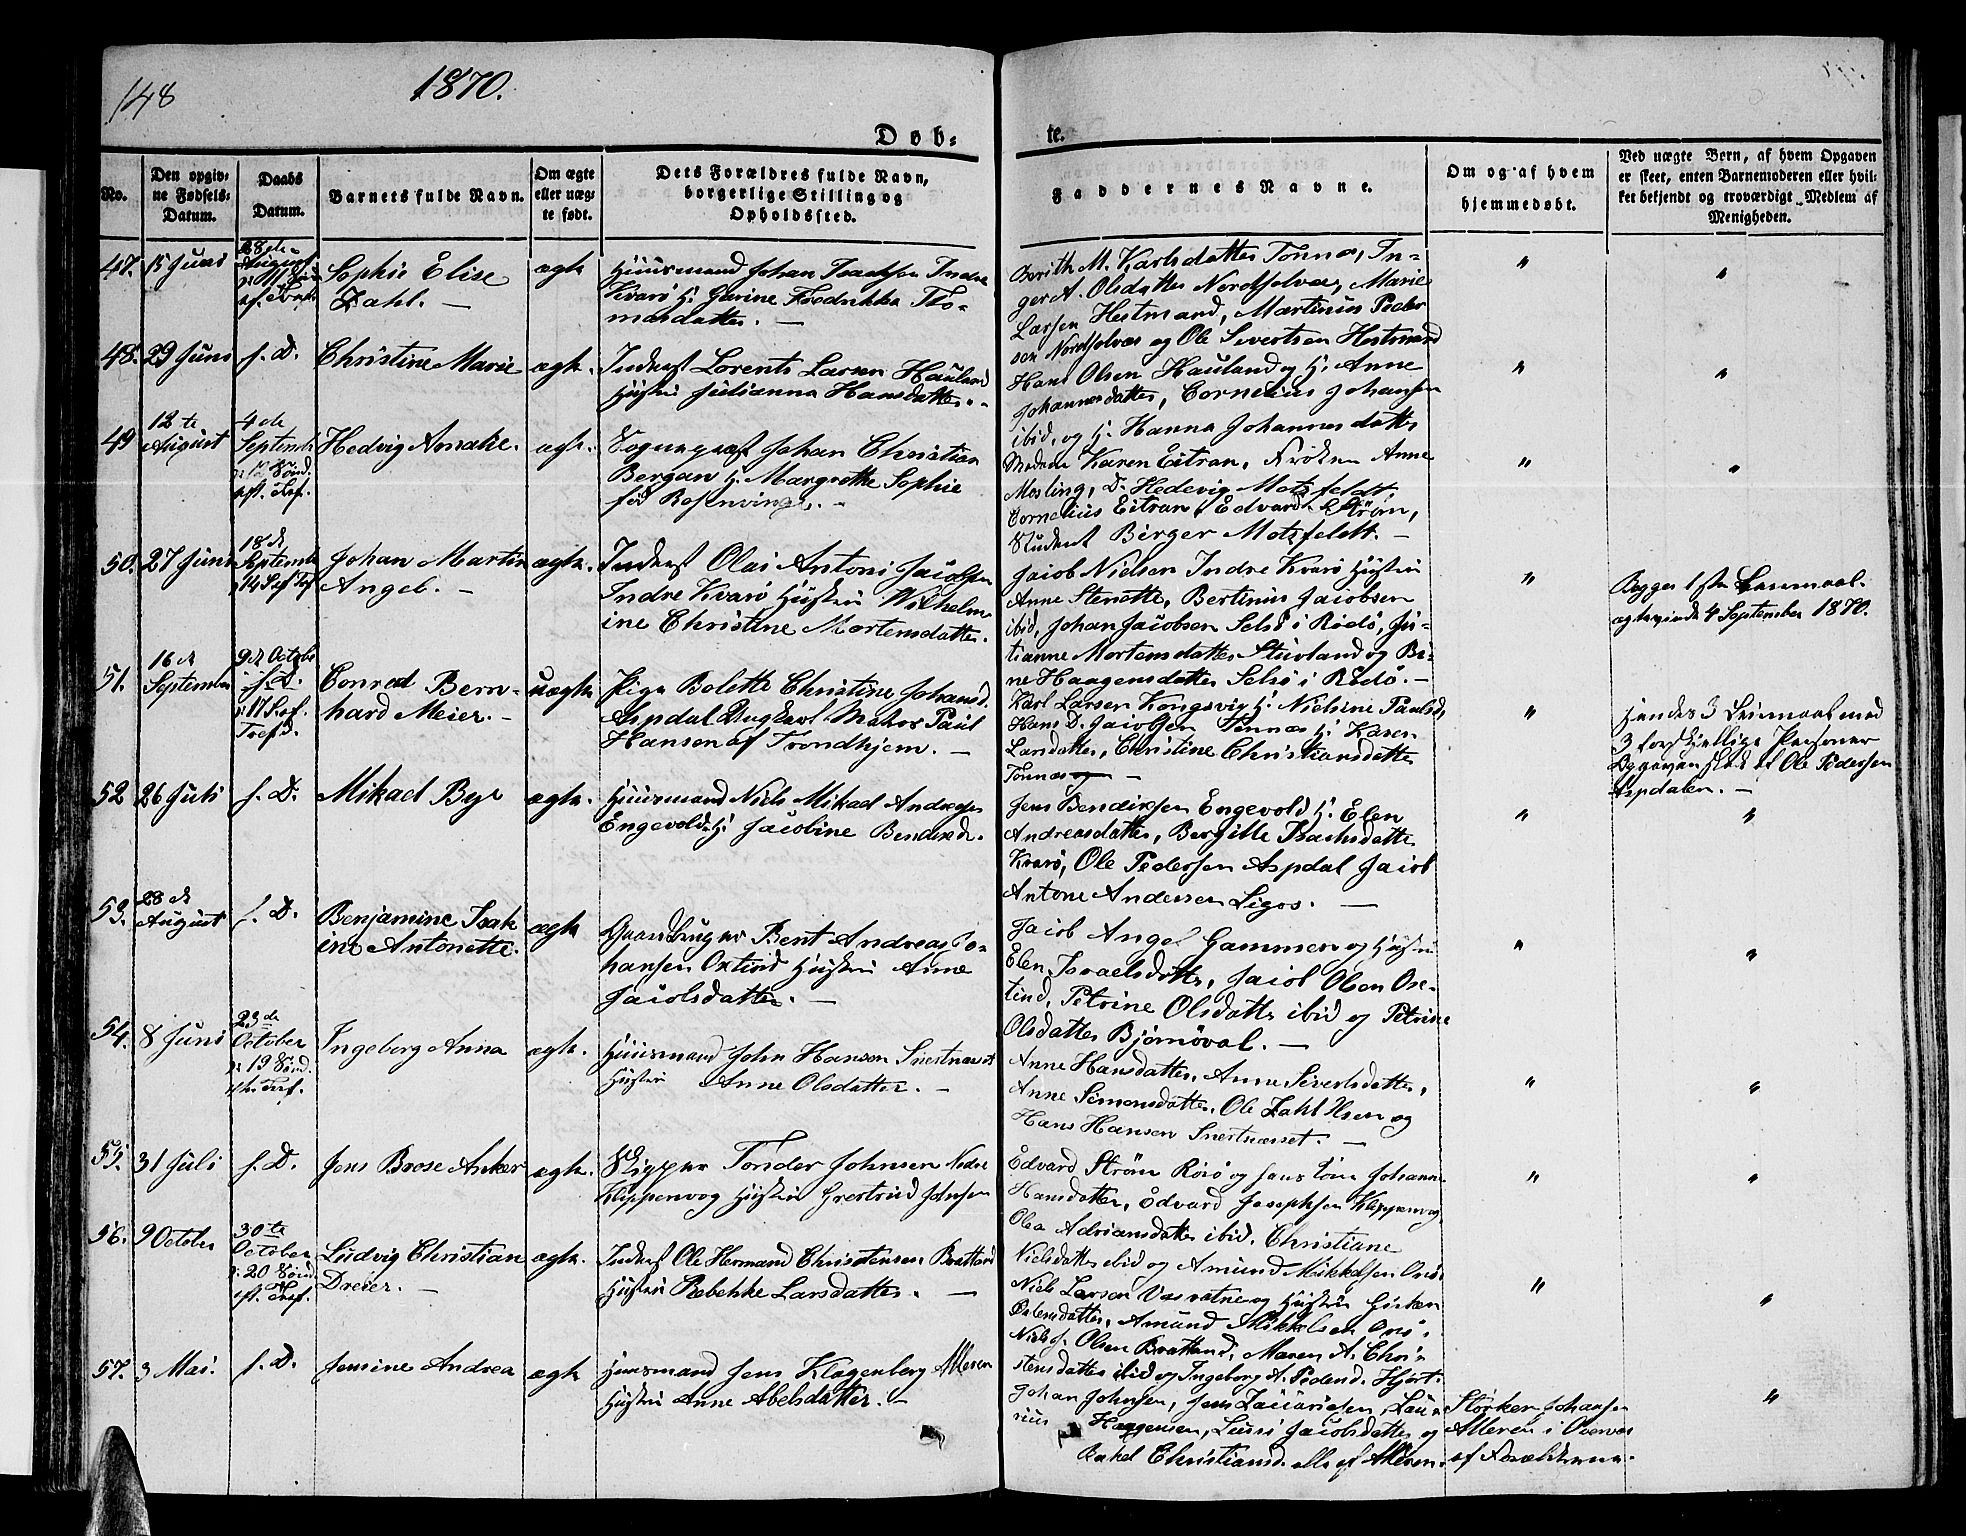 148
1870.
Døb-
te.
No.
Den opgiv-
ne Fødsels-
Datum.
Daabs
Datum.
Barnets fulde Navn.
Om ægte
eller uæg-
te født.
Dets Forældres fulde Navn,
borgerlige Stilling og
Opholdssted.
Faddernes Navne.
Om og af hvem
hjemmedøbt.
Ved uægte Børn, af hvem Opgaven
er skeet, enten Barnemoderen eller hvil-
ket bekjendt og troværdigt Medlem af
Menigheden.
47. 15 Juni
28de
August
Sophie Elise
Zahl. —
ægte
Huusmand Johan Isachsen Indre
Kvarø H: Fredrikka Tho-
masdatter. —
Berith M. Karlsdatter Tonnæs, In-
ger A. Olsdatter Nordsolvær, Marie
Larsen Hestmand, Martinus Peder
sen Nordsolvær og Ole Sivertsen Hestmand
48. 29 Juni
s. D.
Christine Marie
ægte.
Inderst Lorents Larsen Hauland
Hustru Julianna Hansdatter.
Hans Olsen Hauland og H: Anne
Johannesdatter, Cornelius Johansen
ibid, og H: Hanna Johannesdatter
49 12te
August
4de
September
12 Sønd.
eft. Tref.
Hedvig Amalie.
ægte.
Sogneprest Johan Christian
Bergan H: Margrethe Sophie
fød Rosenvinge. —
Madam Karen Eitran, Frøken Anne
Mosling, D. Hedevig Motzfeldt,
Cornelius Eitran, Edvard Strøm,
Student Birger Motzfeldt. —
50. 27 Juni
18de
September
14 S. ef Tref.
Johan Martin
Angel. —
ægte.
Inderst Olai Antoni Jacobsen
Indre Kvarø Hustru Wilhelm
ine Christine Mortensdatter.
Jacob Nielsen Indre Kvarø Hustru
Anne Stenette, Bertinus Jacobsen
ibid, Johan Jacobsen Selsø i Rødø, Ju-
lianne Mortensdatter Stuvland og Bi-
ne Haagensdatter Selsø i Rødø. —
Begges 1ste Leiermaal.
ægteviede 4 September 1870.
51. 16de
September
9de Octobe
17 S. ef.
Trefd.
Conrad Bern-
hard Meier. —
uægte
Pige Bolette Christine Johansd.
Aspdal Ungkarl Matros Paul
Hansen af Trondhjem. —
Karl Larsen Kongsvig H: Nielsine Paulsd.
Hans D. Jacobsen Tonnæs H: Karen
Larsdatter, Christine Christiansdatter
Tonnæs —
Hendes 3 Leiermaal med
3 forskjellige Personer
Opgaven skeet af Ole Pedersen
Aspdalen. —
52 26 Juli
s. D.
Mikael Bye
ægte.
Huusmand Niels Mikael Andresen
Engevold H: Jacobine Bendixd.
Jens Bendiksen Engevold H: Elen
Andreasdatter, Bergitte Isachsdatter
Kvarø, Ole Pedersen Aspdal Jacob
Antone Andersen Ligos. —
53. 28de
August
s. D.
Benjamine Isak
ine Antonette.
ægte
Gaardbruger Bent Andreas Jo-
hansen Oxtind Hustru Anne
Jacobsdatter. —
Jacob Angel Gammen og Hustru
Elen Israelsdatter, Jacob Olsen Ox-
tind, Petrine Olsdatter ibid og Petrine
Olsdatter Bjørnøval. —
54. 8 Juni
23de
October
19 Sønd.
eft. Tref.
Ingeborg Anna
ægte.
Huusmand John Hansen Snertnæsset
Hustru Anne Olsdatter. —
Anne Hansdatter, Anne Sivertsdatter,
Anne Simonsdatter, Ole Zahl Ilsen og
Hans Hansen Snertnæsset. —
55. 31 Juli
s. D.
Jens Brose Anker
ægte.
Skipper Tonder Johnsen Nedre
Klippenvog Hustru Gjertrud Johnsen
Edvard Strøm Rorø og Johanne
Hansdatter, Edvard Josephsen Klippenvog
Olea Adriansdatter ibid, Christiane
Nielsdatter ibid og Amund Mikkelsen Onø.
56. 9 October
30te
October
20 Sønd
eft. Tref.
Ludvig Christian
Dreier. —
ægte.
Inderst Ole Hermand Christensen Bratland
Hustru Rebekke Larsdatter. —
Niels Larsen Vasvatne og Hustru Girken
Ostensdatter, Amund Mikkelsen Onø,
Niels J. Olsen Bratland, Maren A. Chri-
stensdatter ibid og Ingeborg A. Pedersd. Hjort
57. 3 Mai.
s. D.
Jensine Andrea
ægte
Huusmand Jens Klagenberg Alteren
Hustru Anne Abelsdatter. —
Johan Johnsen, Jens Zacariasen, Lau-
rius Haagensen, Lussi Jacobsdatter og
Rakel Christiansd. alle af Alteren.
Størker Johansen
Alteren i Overvær
af Forældrene.